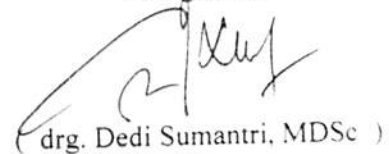 ( drg. Dedi Sumantri, MDSc )